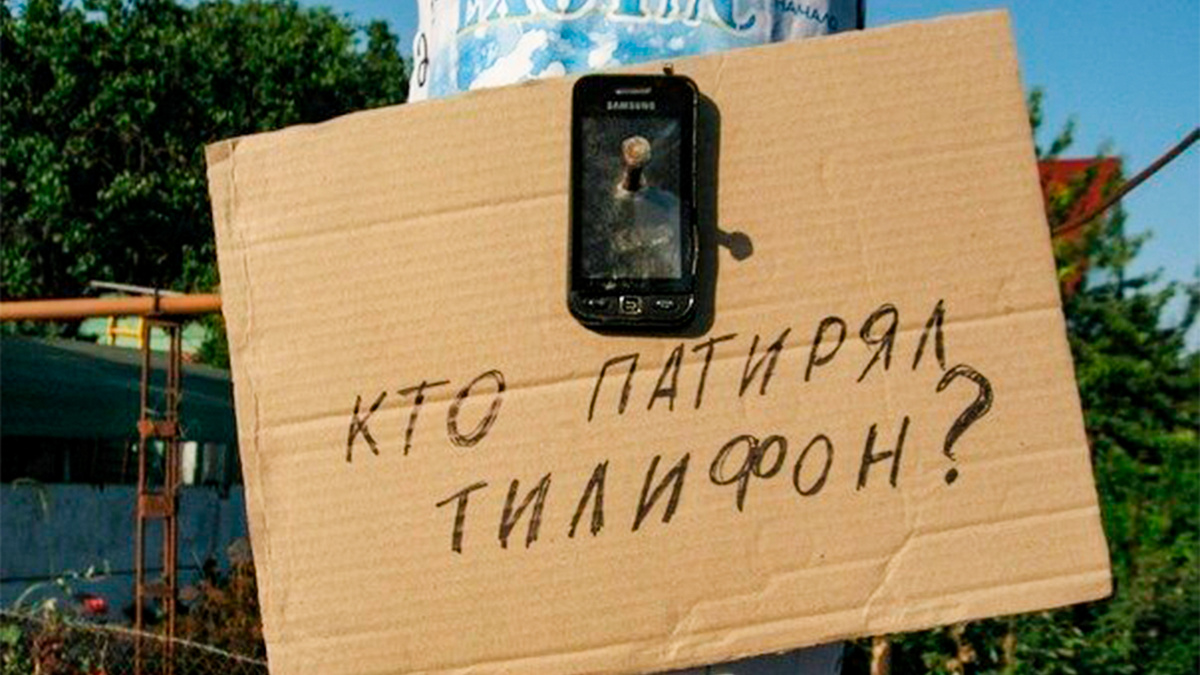 НАЧАЛО
SAMSUNG
КТО ПАТИРЯЛ
ТИЛИФОН?